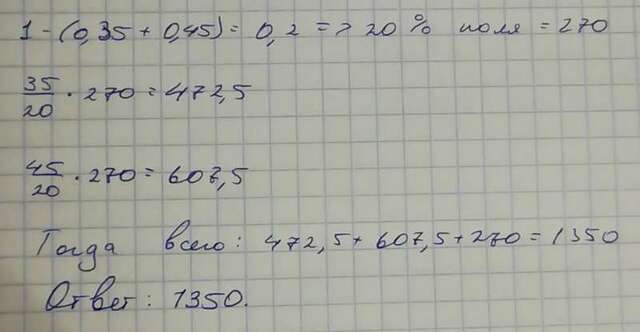 1 - (0,35 + 0,45) = 0,2 => 20 % поля = 270
35/20 · 270 = 472,5
45/20 · 270 = 607,5
Тогда всего: 472,5 + 607,5 + 270 = 1350
Ответ: 1350.